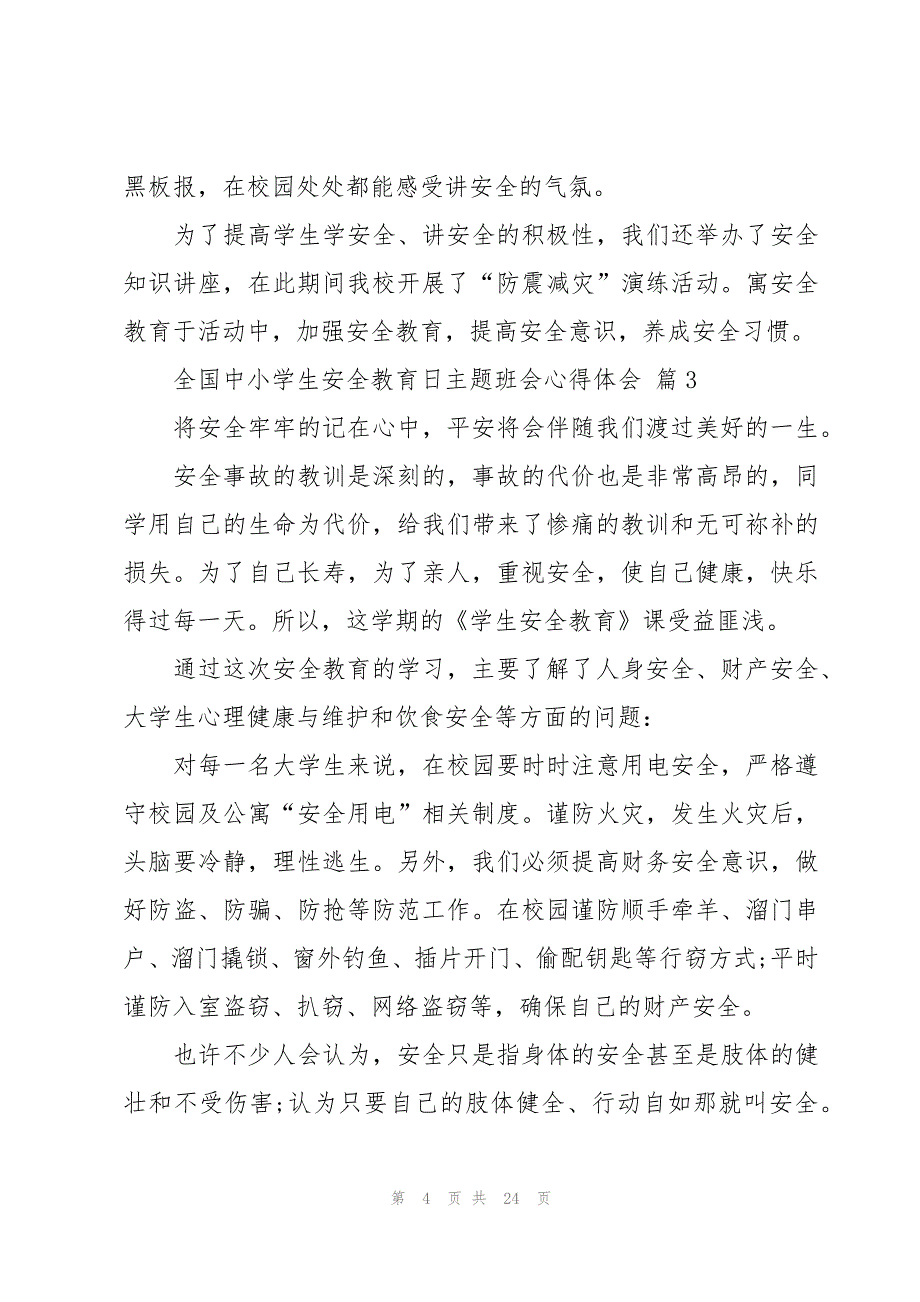 黑板报，在校园处处都能感受讲安全的气氛。
为了提高学生学安全、讲安全的积极性，我们还举办了安全
知识讲座，在此期间我校开展了“防震减灾”演练活动。寓安全
教育于活动中，加强安全教育，提高安全意识，养成安全习惯。
全国中小学生安全教育日主题班会心得体会 篇3
将安全牢牢的记在心中，平安将会伴随我们渡过美好的一生。
安全事故的教训是深刻的，事故的代价也是非常高昂的，同
学用自己的生命为代价，给我们带来了惨痛的教训和无可祢补的
损失。为了自己长寿，为了亲人，重视安全，使自己健康，快乐
得过每一天。所以，这学期的《学生安全教育》课受益匪浅。
通过这次安全教育的学习，主要了解了人身安全、财产安全、
大学生心理健康与维护和饮食安全等方面的问题：
对每一名大学生来说，在校园要时时注意用电安全，严格遵
守校园及公寓“安全用电”相关制度。谨防火灾，发生火灾后，
头脑要冷静，理性逃生。另外，我们必须提高财务安全意识，做
好防盗、防骗、防抢等防范工作。在校园谨防顺手牵羊、溜门串
户、溜门撬锁、窗外钓鱼、插片开门、偷配钥匙等行窃方式;平时
谨防入室盗窃、扒窃、网络盗窃等，确保自己的财产安全。
也许不少人会认为，安全只是指身体的安全甚至是肢体的健
壮和不受伤害;认为只要自己的肢体健全、行动自如那就叫安全。
第 4 页 共 24 页